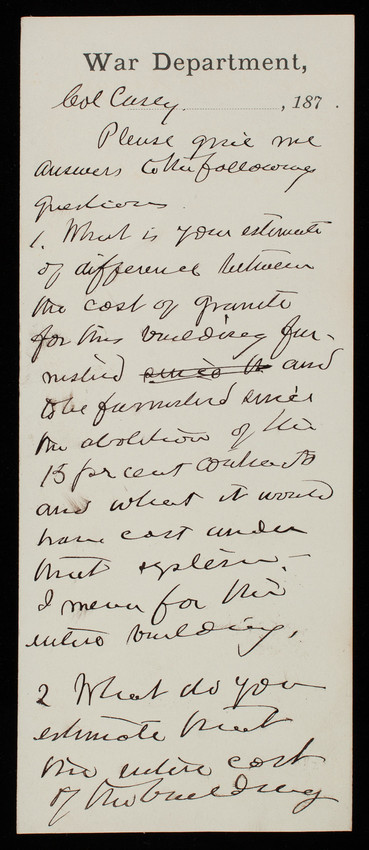 War Department,
Col Casey , 187 .
Please give me
answers to the following
questions.
1. What is your estimate
of difference between
the cost of granite
for this building fur-
nished since th and
to be furnished since
the abolition of the
15 per cent contracts
and what it would
have cost under
that system. —
I mean for the
entire building.
2 What do you
estimate that
the entire cost
of the building